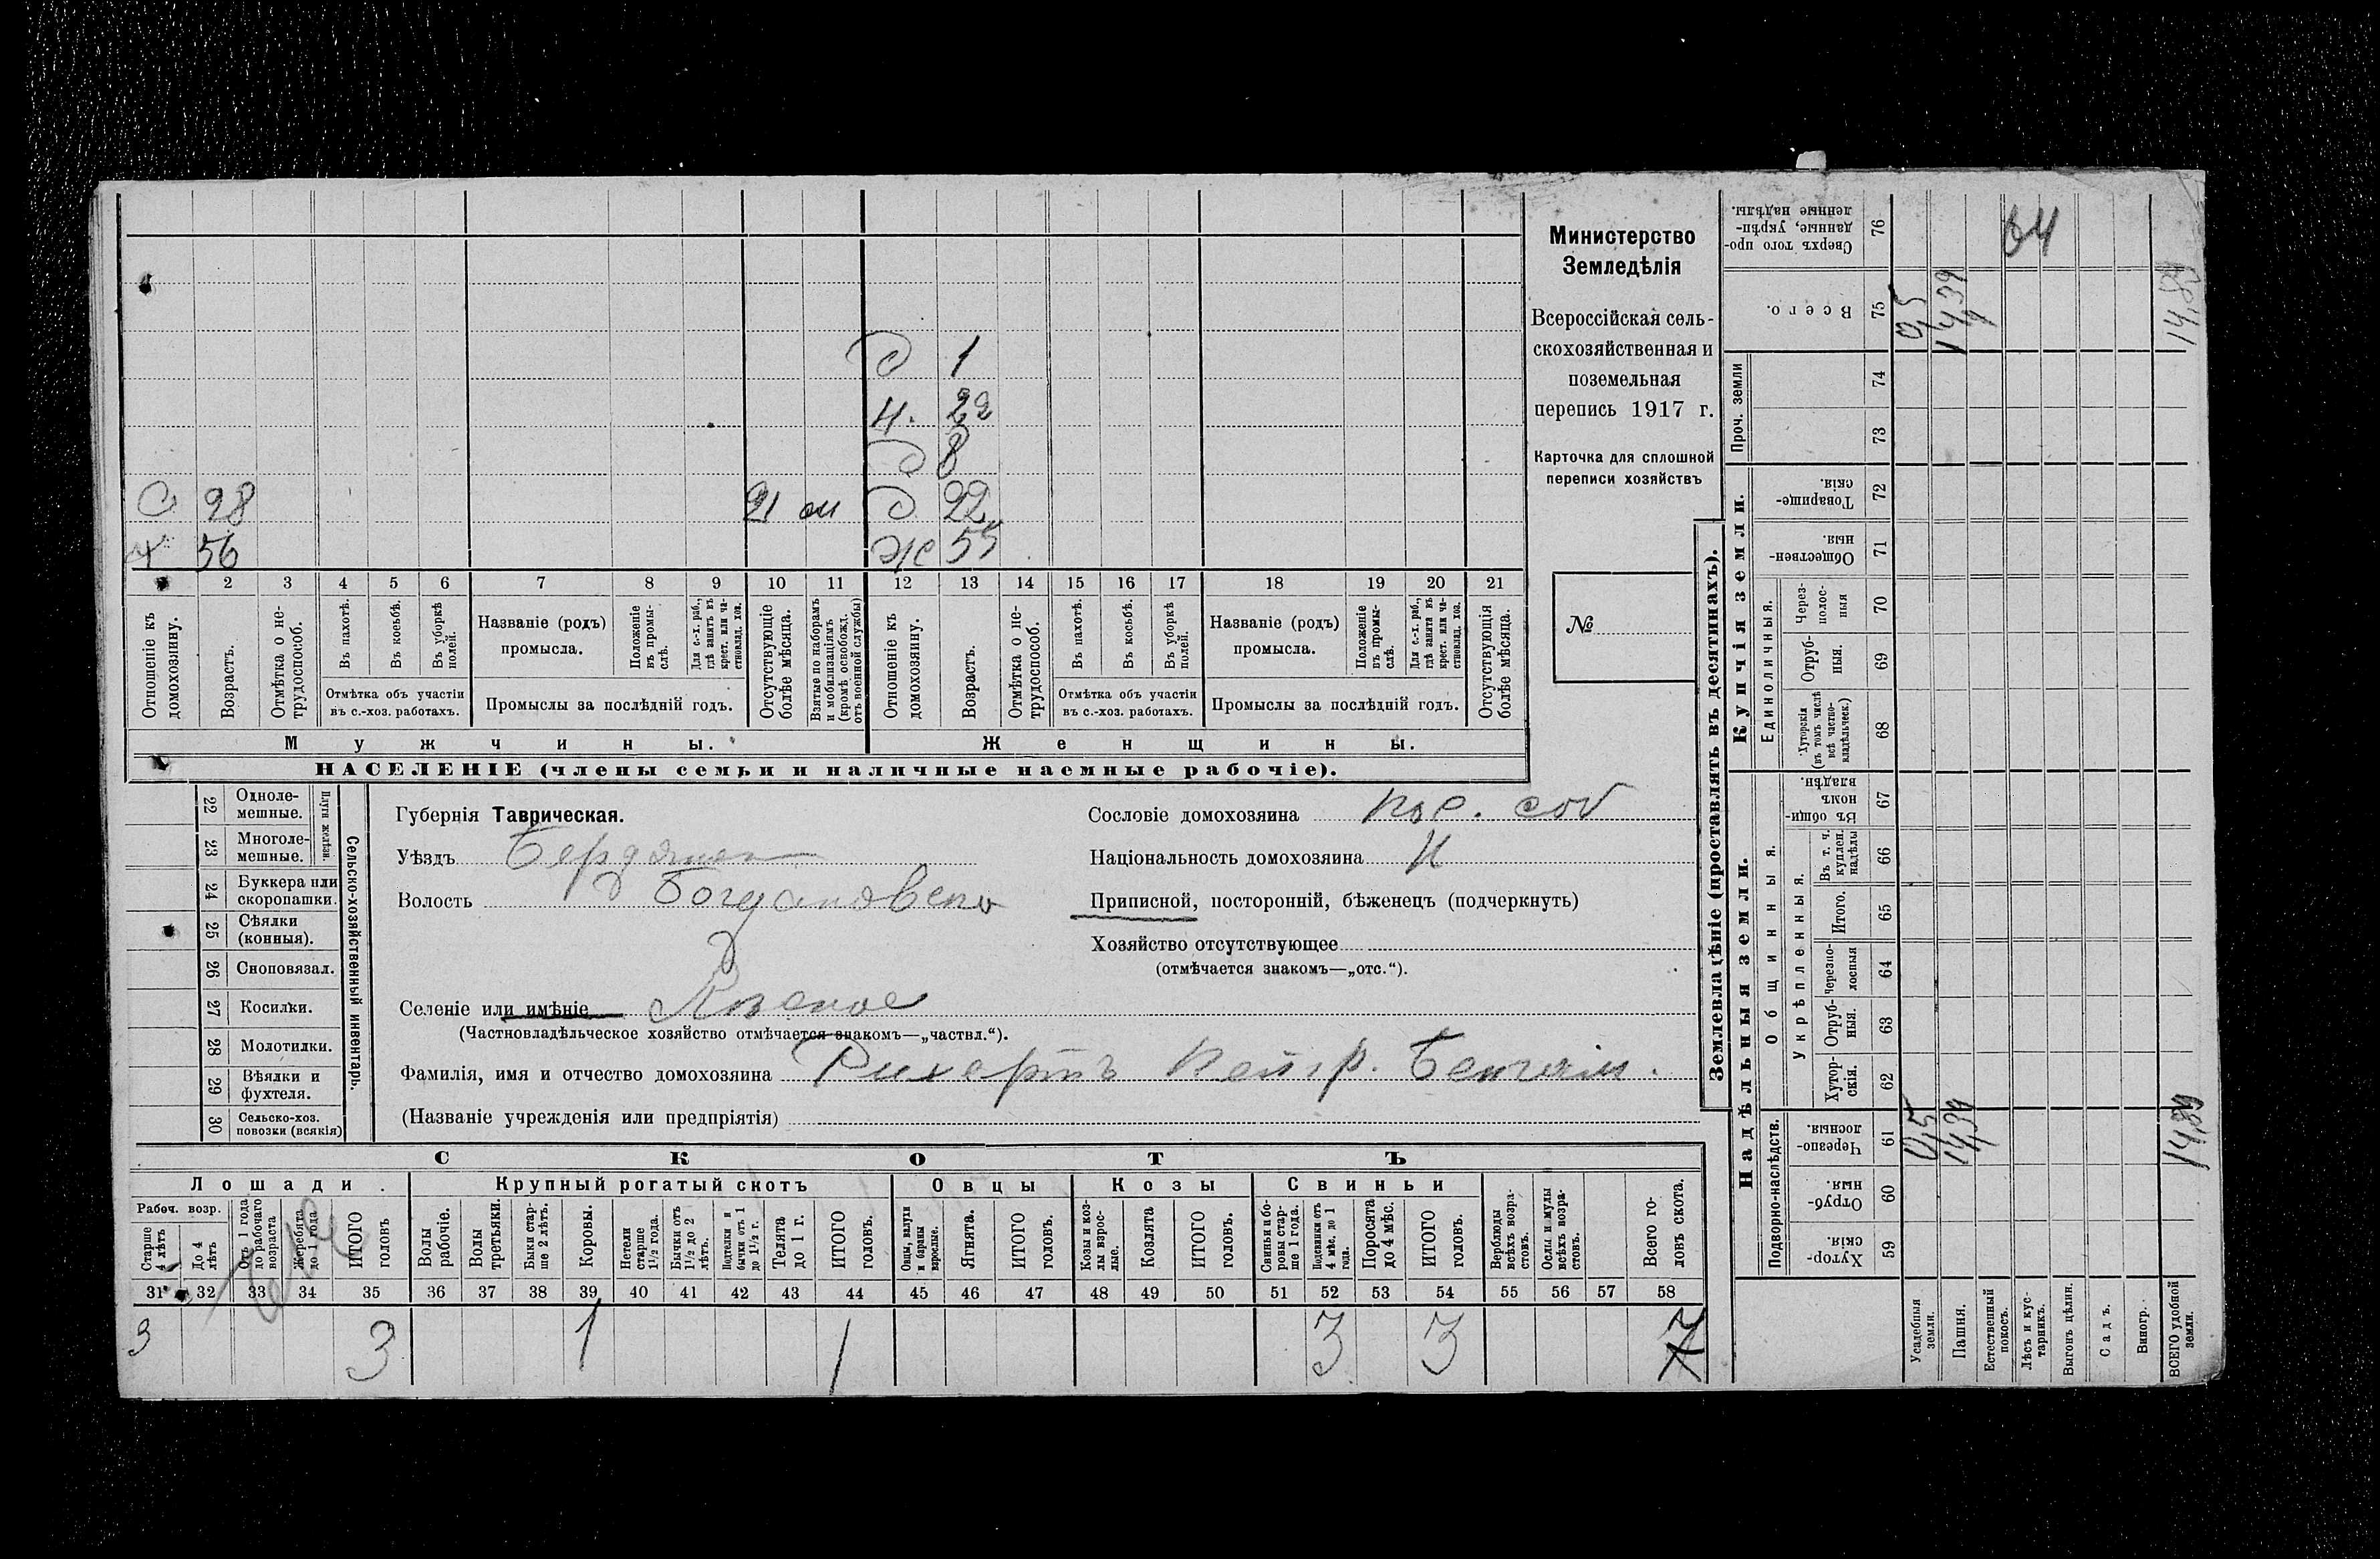 Министерство
Земледѣлія
Всероссійская сель-
скохозяйственная и
поземельная
перепись 1917 г.
Карточка для сплошной
переписи хозяйствъ
№
Д 1
Н. 22
Д 8
С 28 21 Д 22
Х 56 Ж 55
1 2 3 4 5 6 7 8 9 10 11 12 13 14 15 16 17 18 19 20 21
Отношеніе къ домохозяину.
Возрастъ.
Отмѣтка о не-трудоспособ.
Въ пахотѣ.
Въ косьбѣ.
Въ уборкѣ полей.
Отмѣтка объ участіи
въ с.-хоз. работахъ.
Названіе (родъ)
промысла.
Положеніе въ промы-слѣ.
Для с.-х. раб., гдѣ занятъ въ крест. или ча-стновлад. хоз.
Промыслы за послѣдній годъ.
Отсутствующіе болѣе мѣсяца.
Взятые по наборамъ и мобилизаціямъ (кромѣ освобожд. отъ военной службы)
Отношеніе къ домохозяину.
Возрастъ.
Отмѣтка о не-трудоспособ.
Въ пахотѣ.
Въ косьбѣ.
Въ уборкѣ полей.
Отмѣтка объ участіи
въ с.-хоз. работахъ.
Названіе (родъ)
промысла.
Положеніе въ промы-слѣ.
Для с.-х. раб., гдѣ занята въ крест. или ча-стновлад. хоз.
Промыслы за послѣдній годъ.
Отсутствующія болѣе мѣсяца.
Мужчины. Женщины.
НАСЕЛЕНІЕ (члены семьи и наличные наемные рабочіе).
Сельско-хозяйственный инвентарь.
Плуги желѣзн.
22 Одноле-мешные.
23 Многоле-мешные.
24 Буккера или скоропашки.
25 Сѣялки (конныя).
26 Сноповязал.
27 Косилки.
28 Молотилки.
29 Вѣялки и фухтеля.
30 Сельско-хоз. повозки (всякія)
Губернія Таврическая.
Уѣздъ Бердянск
Волость Богдановско
Селеніе или имѣніе
(Частновладѣльческое хозяйство отмѣчается знакомъ—„частвл.“).
Фамилія, имя и отчество домохозяина Рихертъ Петр. Бенжам.
(Названіе учрежденія или предпріятія)
Сословіе домохозяина пос. соб
Національность домохозяина Н
Приписной, посторонній, бѣженецъ (подчеркнуть)
Хозяйство отсутствующее
(отмѣчается знакомъ—„отс.“).
СКОТЪ
Лошади.
Рабоч. возр.
Старше 4 лѣтъ
До 4 лѣтъ
Отъ 1 года до рабочаго возраста
Жеребята до 1 года
ИТОГО головъ
Крупный рогатый скотъ
Волы рабочіе.
Волы третьяки.
Быки стар-ше 2 лѣтъ.
Коровы.
Нетели старше 1½ года.
Бычки отъ 1½ до 2 лѣтъ.
Подтелки и бычки отъ 1 до 1½ г.
Телята до 1 г.
ИТОГО головъ.
Овцы
Овцы, валухи и бараны взрослые.
Ягнята.
ИТОГО головъ.
Козы
Козы и коз-лы взрос-лые.
Козлята
ИТОГО головъ.
Свиньи
Свиньи и бо-ровы стар-ше 1 года.
Подсвинки отъ 4 мѣс. до 1 года.
Поросята до 4 мѣс.
ИТОГО головъ.
Верблюды всѣхъ возра-стовъ.
Ослы и мулы всѣхъ возра-стовъ.
Всего го-ловъ скота.
31 32 33 34 35 36 37 38 39 40 41 42 43 44 45 46 47 48 49 50 51 52 53 54 55 56 57 58
3 3 1 1 3 3 7
Землевладѣніе (проставлять въ десятинахъ).
Купчія земли.
Надѣльныя земли.
Сверхъ того про-данные, укрѣп-ленные надѣлы. 76
Всего. 75
Проч. земли 74
73
Товарище-скія. 72
Обществен-ныя. 71
Единоличныя.
Через-полос-ныя 70
Отруб-ныя. 69
Хуторскія (въ томъ числѣ всѣ частно-владѣльческ.) 68
Общинныя.
Въ общи-номъ владѣн. 67
Укрѣпленныя.
Въ т. ч. куплен. надѣлы 66
Итого. 65
Черезпо-лосныя 64
Отруб-ныя. 63
Хутор-скія. 62
Подворно-наслѣдств.
Черезпо-лосныя. 61
Отруб-ныя. 60
Хутор-скія. 59
Усадебныя земли.
Пашня.
Естественный покосъ.
Лѣсъ и кус-тарникъ.
Выгонъ цѣлин.
Садъ.
Виногр.
ВСЕГО удобной земли.
0,5 14,39 14,89
0,5 14,39 14,89
64